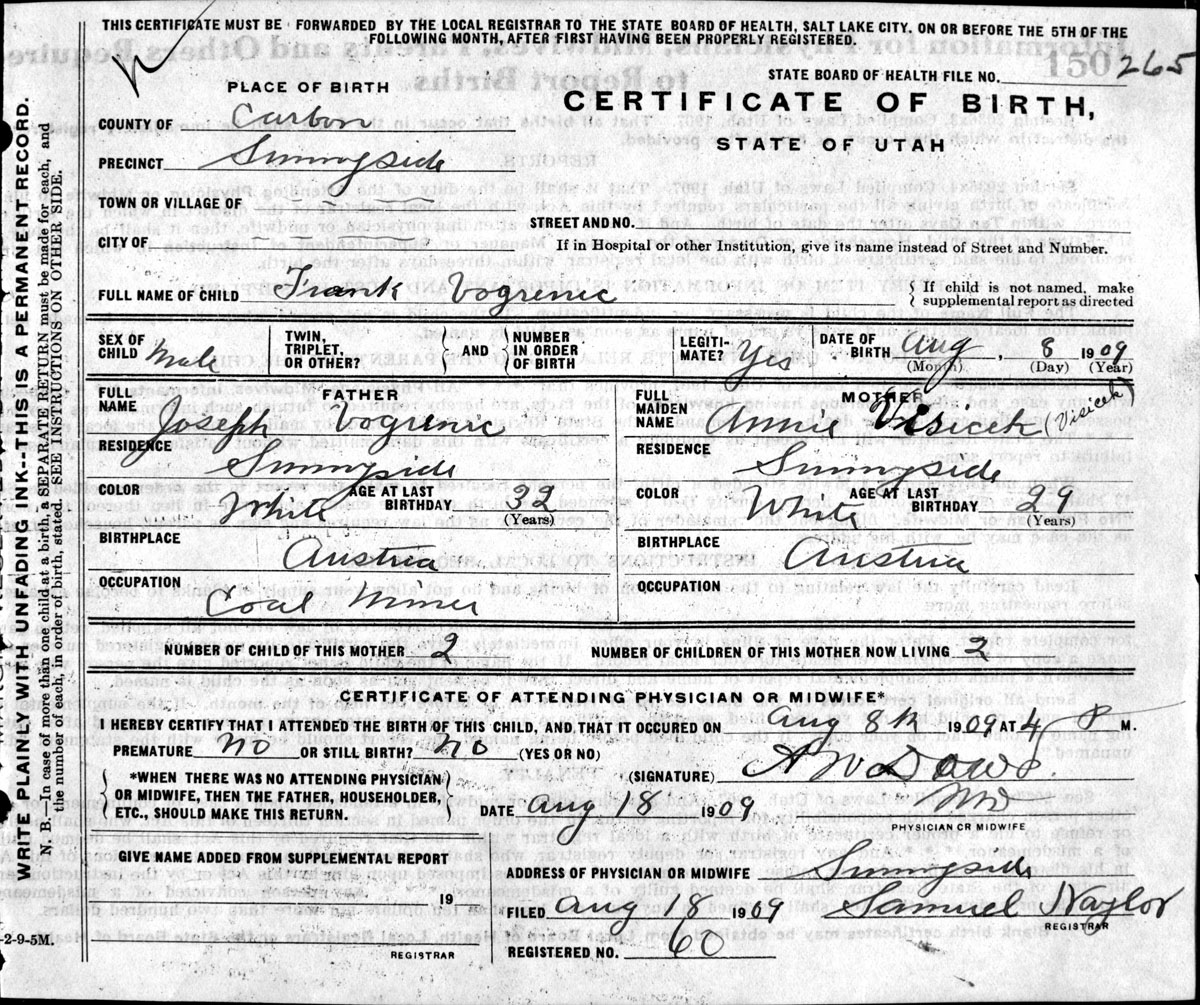 THIS CERTIFICATE MUST BE FORWARDED BY THE LOCAL REGISTRAR TO THE STATE BOARD OF HEALTH, SALT LAKE CITY, ON OR BEFORE THE 5TH OF THE
FOLLOWING MONTH, AFTER FIRST HAVING BEEN PROPERLY REGISTERED.
150 265
STATE BOARD OF HEALTH FILE NO.
PLACE OF BIRTH
CERTIFICATE OF BIRTH,
STATE OF UTAH
COUNTY OF Carbon
PRECINCT Sunnyside
TOWN OR VILLAGE OF
STREET AND NO.
CITY OF
If in Hospital or other Institution, give its name instead of Street and Number.
FULL NAME OF CHILD Frank Vogrenic
{ If child is not named, make
supplemental report as directed
SEX OF CHILD Male
TWIN, TRIPLET, OR OTHER? { AND } NUMBER IN ORDER OF BIRTH
LEGITI-MATE? Yes
DATE OF BIRTH Aug, 8 1909
(Month) (Day) (Year)
FATHER
FULL NAME Joseph Vogrenic
RESIDENCE Sunnyside
COLOR White AGE AT LAST BIRTHDAY 32
(Years)
BIRTHPLACE Austria
OCCUPATION Coal Miner
MOTHER
FULL MAIDEN NAME Annie Visicek (Visicek)
RESIDENCE Sunnyside
COLOR White AGE AT LAST BIRTHDAY 29
(Years)
BIRTHPLACE Austria
OCCUPATION
NUMBER OF CHILD OF THIS MOTHER 2
NUMBER OF CHILDREN OF THIS MOTHER NOW LIVING 2
CERTIFICATE OF ATTENDING PHYSICIAN OR MIDWIFE*
I HEREBY CERTIFY THAT I ATTENDED THE BIRTH OF THIS CHILD, AND THAT IT OCCURED ON Aug 8th 1909 AT 4 P M.
PREMATURE No OR STILL BIRTH? No (YES OR NO)
{ *WHEN THERE WAS NO ATTENDING PHYSICIAN
OR MIDWIFE, THEN THE FATHER, HOUSEHOLDER,
ETC., SHOULD MAKE THIS RETURN. }
(SIGNATURE) A W Dows
DATE Aug 18 1909 MD
PHYSICIAN OR MIDWIFE
GIVE NAME ADDED FROM SUPPLEMENTAL REPORT
19
REGISTRAR
ADDRESS OF PHYSICIAN OR MIDWIFE Sunnyside
FILED Aug 18 1909 Samuel Naylor
REGISTRAR
REGISTERED NO. 60
-2-9-5M.
WRITE PLAINLY WITH UNFADING INK--THIS IS A PERMANENT RECORD.
N. B.--In case of more than one child at a birth, a SEPARATE RETURN must be made for each, and
the number of each, in order of birth, stated. SEE INSTRUCTIONS ON OTHER SIDE.